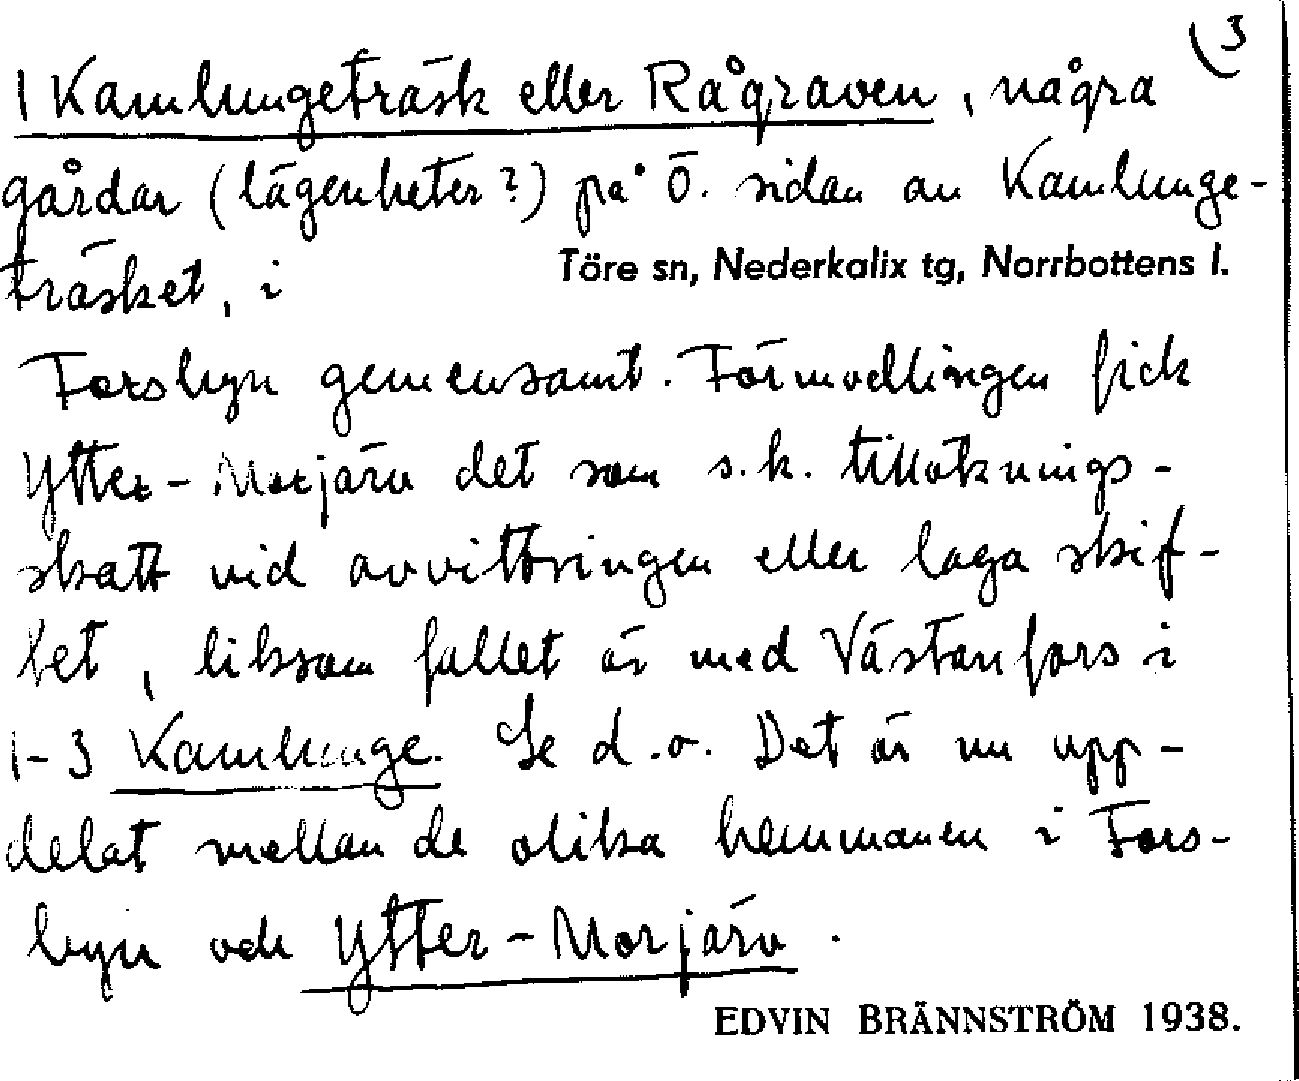 3
1 Kamlungeträsk eller Rågraven, några
gårdar (lägenheter?) på ö. sidan av Kamlunge-
träsket, i
Töre sn, Nederkalix tg, Norrbottens l.
Forsbyn gemensamt. Förmodlingen fick
Ytter-Morjärv det som s.k. tillöknings-
skatt vid avvittringen eller laga skif-
tet, liksom fallet är med Västanfors i
1-3 Kamlunge. Se d.o. Det är nu upp-
delat mellan de olika hemmanen i Fors-
byn och Ytter-Morjärv.
EDVIN BRÄNNSTRÖM 1938.